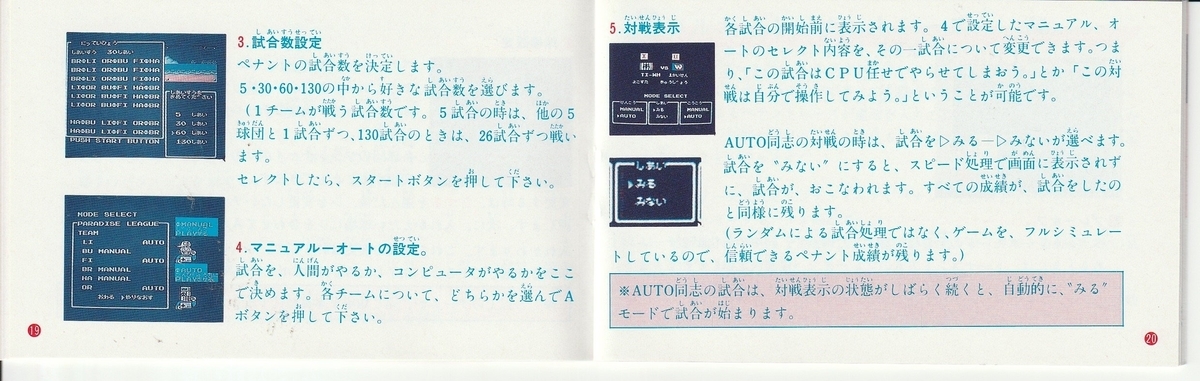 3.試合数設定
ペナントの試合数を決定します。
5・30・60・130の中から好きな試合数を選びます。
(1チームが戦う試合数です。5試合の時は、他の5
球団と1試合ずつ、130試合のときは、26試合ずつ戦い
ます。
セレクトしたら、スタートボタンを押して下さい。
しあいすう 30しあい
5 しあい
30 しあい
60 しあい
130しあい
PUSH START BUTTON
MODE SELECT
PARADISE LEAGUE
TEAM
LI AUTO
BU MANUAL
FI AUTO
BR MANUAL
HA MANUAL
OR AUTO
おわる ▷やりなおす
4.マニュアルーオートの設定。
試合を、人間がやるか、コンピュータがやるかをここ
で決めます。各チームについて、どちらかを選んでA
ボタンを押して下さい。
19
5.対戦表示
MODE SELECT
各試合の開始前に表示されます。4で設定したマニュアル、オ
ートのセレクト内容を、その一試合について変更できます。つま
り、「この試合はCPU任せでやらせてしまおう。」とか「この対
戦は自分で操作してみよう。」ということが可能です。
しあい
▷みる
みない
AUTO同志の対戦の時は、試合を▷みる―▷みないが選べます。
試合を〝みない〟にすると、スピード処理で画面に表示されず
に、試合が、おこなわれます。すべての成績が、試合をしたの
と同様に残ります。
(ランダムによる試合処理ではなく、ゲームを、フルシミュレー
トしているので、信頼できるペナント成績が残ります。)
※AUTO同志の試合は、対戦表示の状態がしばらく続くと、自動的に、〝みる〟
モードで試合が始まります。
20